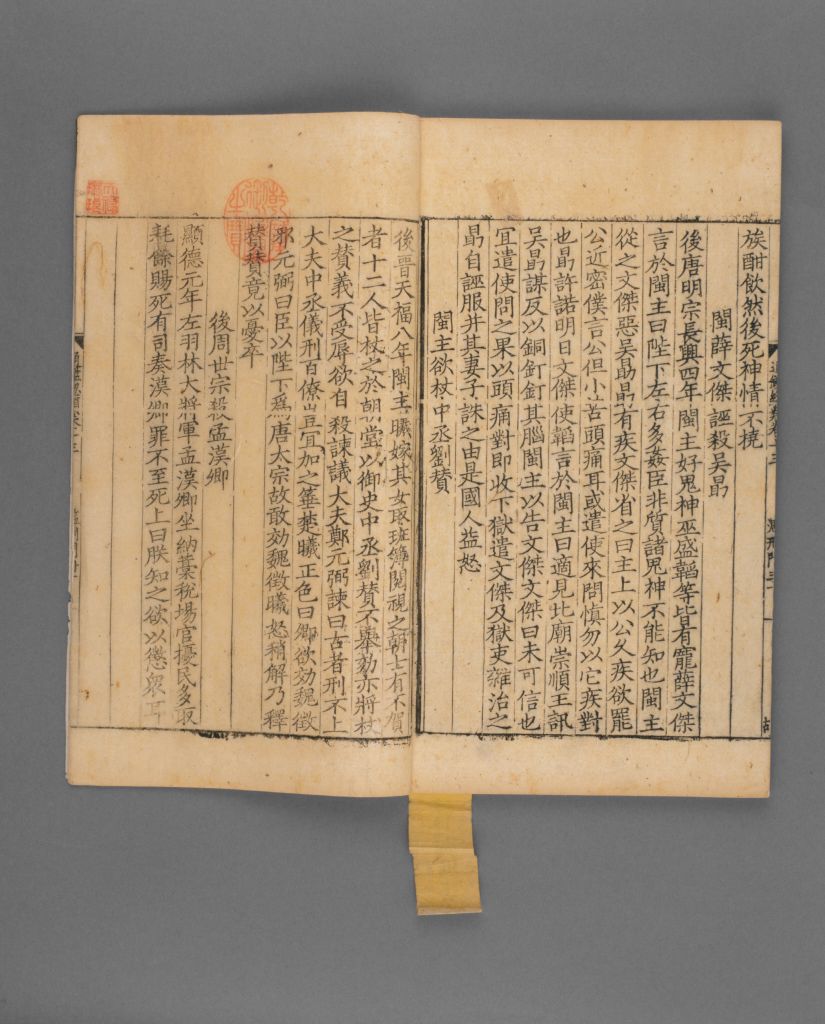 族酣飲然後死神情不撓
閩薛文傑誣殺吳勗
後唐明宗長興四年閩主好鬼神巫盛韜等皆有寵薛文傑
言於閩主曰陛下左右多姦臣非質諸鬼神不能知也閩主
從之文傑惡吳勗勗有疾文傑省之曰主上以公久疾欲罷
公近密僕言公但小苦頭痛耳或遣使來問慎勿以它疾對
也勗許諾明日文傑使韜言於閩主曰適見北廟崇順王訊
吳勗謀反以銅釘釘其腦閩主以告文傑文傑曰未可信也
宜遣使問之果以頭痛對即收下獄遣文傑及獄吏雜治之
勗自誣服并其妻子誅之由是國人益怒
閩主欲杖中丞劉贊
後晉天福八年閩主曦嫁其女取班簿閱視之朝士有不賀
者十二人皆杖之於朝堂以御史中丞劉贊不舉劾亦將杖
之贊義不受辱欲自殺諫議大夫鄭元弼諫曰古者刑不上
大夫中丞儀刑百僚豈宜加之箠楚曦正色曰卿欲効魏徵
邪元弼曰臣以陛下爲唐太宗故敢効魏徵曦怒稍解乃釋
贊贊竟以憂卒
後周世宗殺孟漢卿
顯德元年左羽林大將軍孟漢卿坐納藁稅場官擾民多取
耗餘賜死有司奏漢卿罪不至死上曰朕知之欲以懲衆耳